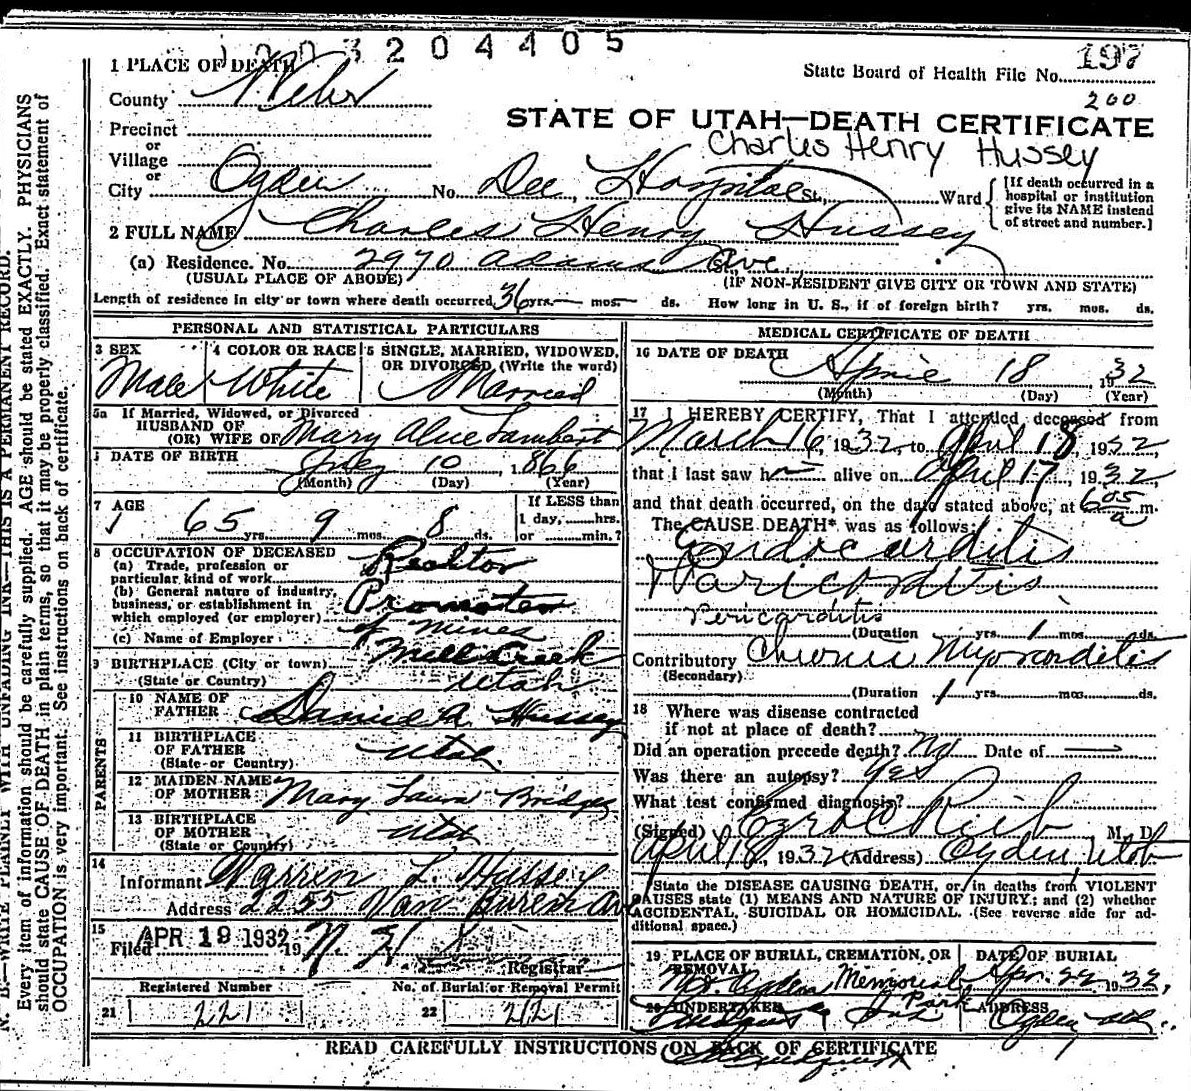 1003204405
197
State Board of Health File No.
200
1 PLACE OF DEATH
County Weber
STATE OF UTAH—DEATH CERTIFICATE
Charles Henry Hussey
Precinct
or
Village
or
City Ogden No. Dee Hospital St. Ward [If death occurred in a hospital or institution give its NAME instead of street and number.]
2 FULL NAME Charles Henry Hussey
(a) Residence. No. 2970 Adams Ave. St.
(USUAL PLACE OF ABODE) (IF NON-RESIDENT GIVE CITY OR TOWN AND STATE)
Length of residence in city or town where death occurred 36 yrs. — mos. — ds. How long in U. S., if of foreign birth? yrs. mos. ds.
PERSONAL AND STATISTICAL PARTICULARS
3 SEX
Male
4 COLOR OR RACE
White
5 SINGLE, MARRIED, WIDOWED, OR DIVORCED, (Write the word)
Married
5a If Married, Widowed, or Divorced
HUSBAND OF
(OR) WIFE OF Mary Alice Lambert
DATE OF BIRTH July 10, 1866
(Month) (Day) (Year)
7 AGE
65 yrs. 9 mos. 8 ds.
If LESS than
1 day, hrs.
or min.?
8 OCCUPATION OF DECEASED
(a) Trade, profession or particular kind of work Realtor
(b) General nature of industry, business, or establishment in which employed (or employer) Promoter of mines
(c) Name of Employer
9 BIRTHPLACE (City or town) Mill Creek
(State or Country) Utah
PARENTS
10 NAME OF FATHER Daniel A. Hussey
11 BIRTHPLACE OF FATHER Utah.
(State or Country)
12 MAIDEN NAME OF MOTHER Mary Laura Bridges
13 BIRTHPLACE OF MOTHER Utah
(State or Country)
14
Informant Warren L. Hussey
Address 2255 Van Buren Av
15
Filed APR 19 1932 19
Registrar
Registered Number
21 221
No. of Burial or Removal Permit
22 221
MEDICAL CERTIFICATE OF DEATH
16 DATE OF DEATH
April 18, 1932
(Month) (Day) (Year)
17 I HEREBY CERTIFY, That I attended deceased from
March 16, 1932, to April 18, 1932,
that I last saw h alive on April 17, 1932,
and that death occurred, on the date stated above, at 6 05 a m.
The CAUSE DEATH* was as follows:
Endocarditis
Pericarditis
(Duration yrs. 1 mos. ds.
Contributory Chronic Myocarditis
(Secondary)
(Duration 1 yrs. mos. ds.
18 Where was disease contracted
if not at place of death?
Did an operation precede death? No Date of
Was there an autopsy? Yes
What test confirmed diagnosis?
(Signed) Ezra C Rich M. D.
April 18, 1932 (Address) Ogden, Utah
State the DISEASE CAUSING DEATH, or, in deaths from VIOLENT
CAUSES state (1) MEANS AND NATURE OF INJURY; and (2) whether
ACCIDENTAL, SUICIDAL OR HOMICIDAL. (See reverse side for ad-
ditional space.)
19 PLACE OF BURIAL, CREMATION, OR REMOVAL
Ogden Memorial Park
DATE OF BURIAL
Apr. 22 1932,
20 UNDERTAKER
ADDRESS
Ogden
READ CAREFULLY INSTRUCTIONS ON BACK OF CERTIFICATE
N. B.—WRITE PLAINLY WITH UNFADING INK—THIS IS A PERMANENT RECORD.
Every item of information should be carefully supplied. AGE should be stated EXACTLY. PHYSICIANS
should state CAUSE OF DEATH in plain terms, so that it may be properly classified. Exact statement of
OCCUPATION is very important. See instructions on back of certificate.